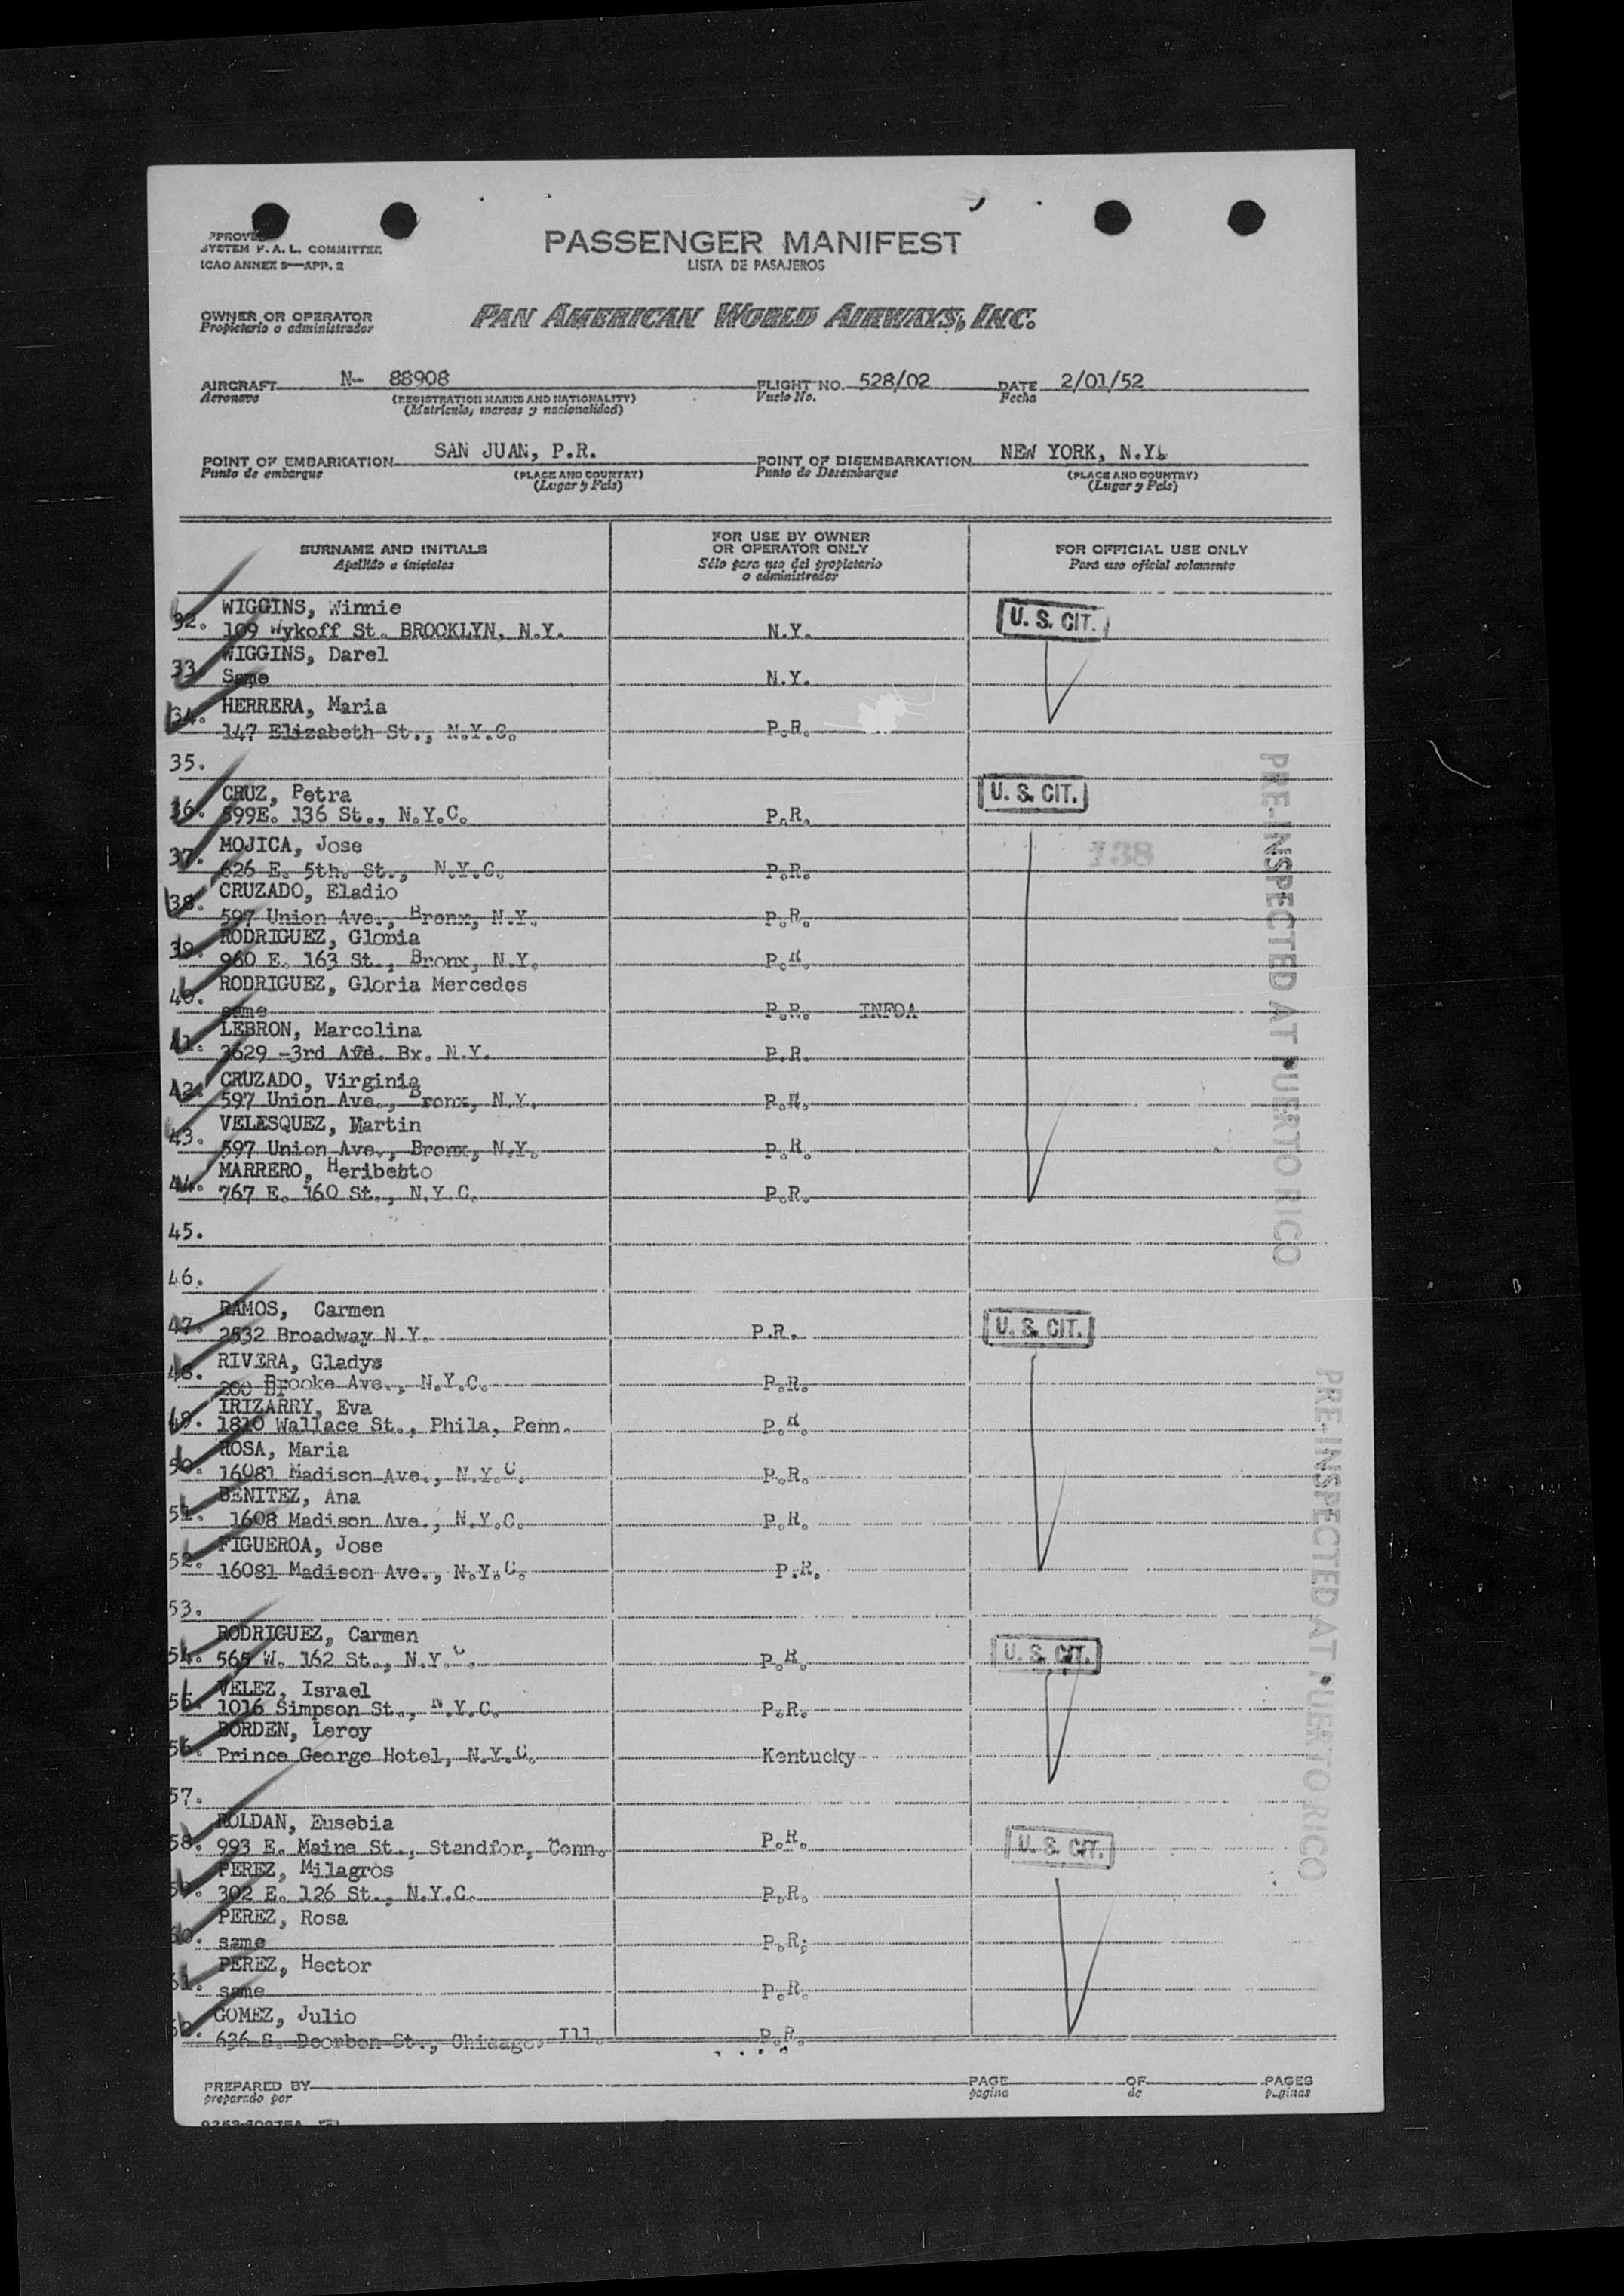 SYSTEM F. A. L. COMMITTEE
ICAO ANNEX 9—APP. 2
PASSENGER MANIFEST
LISTA DE PASAJEROS
OWNER OR OPERATOR
Propietario o administrador
PAN AMERICAN WORLD AIRWAYS, INC.
AIRCRAFT N- 88908 FLIGHT NO. 528/02 DATE 2/01/52
Aeronave (REGISTRATION MARKS AND NATIONALITY) Vuelo No. Fecha
(Matrícula, marcas y nacionalidad)
POINT OF EMBARKATION SAN JUAN, P.R. POINT OF DISEMBARKATION NEW YORK, N.Y.
Punto de embarque (PLACE AND COUNTRY) Punto de Desembarque (PLACE AND COUNTRY)
(Lugar y País) (Lugar y País)
SURNAME AND INITIALS
Apellido e iniciales
FOR USE BY OWNER
OR OPERATOR ONLY
Sólo para uso del propietario
o administrador
FOR OFFICIAL USE ONLY
Para uso oficial solamente
WIGGINS, Winnie
32. 109 Wykoff St. BROOKLYN, N.Y. N.Y. U. S. CIT.
WIGGINS, Darel
33. Same N.Y.
HERRERA, Maria
34. 147 Elizabeth St., N.Y.C. P.R.
35.
CRUZ, Petra
36. 599E. 136 St., N.Y.C. P.R. U. S. CIT.
MOJICA, Jose
37. 626 E. 5th. St., N.Y.C. P.R. 138
CRUZADO, Eladio
38. 597 Union Ave., Bronx, N.Y. P.R.
RODRIGUEZ, Gloria
39. 960 E. 163 St., Bronx, N.Y. P.R.
RODRIGUEZ, Gloria Mercedes
40. same P.R. INFOA
LEBRON, Marcolina
41. 3629 -3rd Ave. Bx. N.Y. P.R.
CRUZADO, Virginia
42. 597 Union Ave., Bronx, N.Y. P.R.
VELESQUEZ, Martin
43. 597 Union Ave., Bronx, N.Y. P.R.
MARRERO, Heriberto
44. 767 E. 160 St., N.Y.C. P.R.
PRE-INSPECTED AT PUERTO RICO
45.
46.
RAMOS, Carmen
47. 2532 Broadway N.Y. P.R. U. S. CIT.
RIVERA, Gladys
48. Brooke Ave., N.Y.C. P.R.
IRIZARRY, Eva
49. 1810 Wallace St., Phila, Penn. P.R.
ROSA, Maria
50. 16081 Madison Ave., N.Y.C. P.R.
BENITEZ, Ana
51. 1608 Madison Ave., N.Y.C. P.R.
FIGUEROA, Jose
52. 16081 Madison Ave., N.Y.C. P.R.
53.
RODRIGUEZ, Carmen
54. 565 W. 162 St., N.Y.C. P.R. U. S. CIT.
VELEZ, Israel
55. 1016 Simpson St., N.Y.C. P.R.
BORDEN, Leroy
56. Prince George Hotel, N.Y.C. Kentucky
PRE-INSPECTED AT PUERTO RICO
57.
ROLDAN, Eusebia
58. 993 E. Maine St., Standfor, Conn. P.R. U. S. CIT.
PEREZ, Milagros
59. 302 E. 126 St., N.Y.C. P.R.
PEREZ, Rosa
60. same P.R;
PEREZ, Hector
61. same P.R.
GOMEZ, Julio
62. 636 S. Deorben St., Chicago, Ill. P.R.
PREPARED BY PAGE OF PAGES
preparado por pagina de paginas